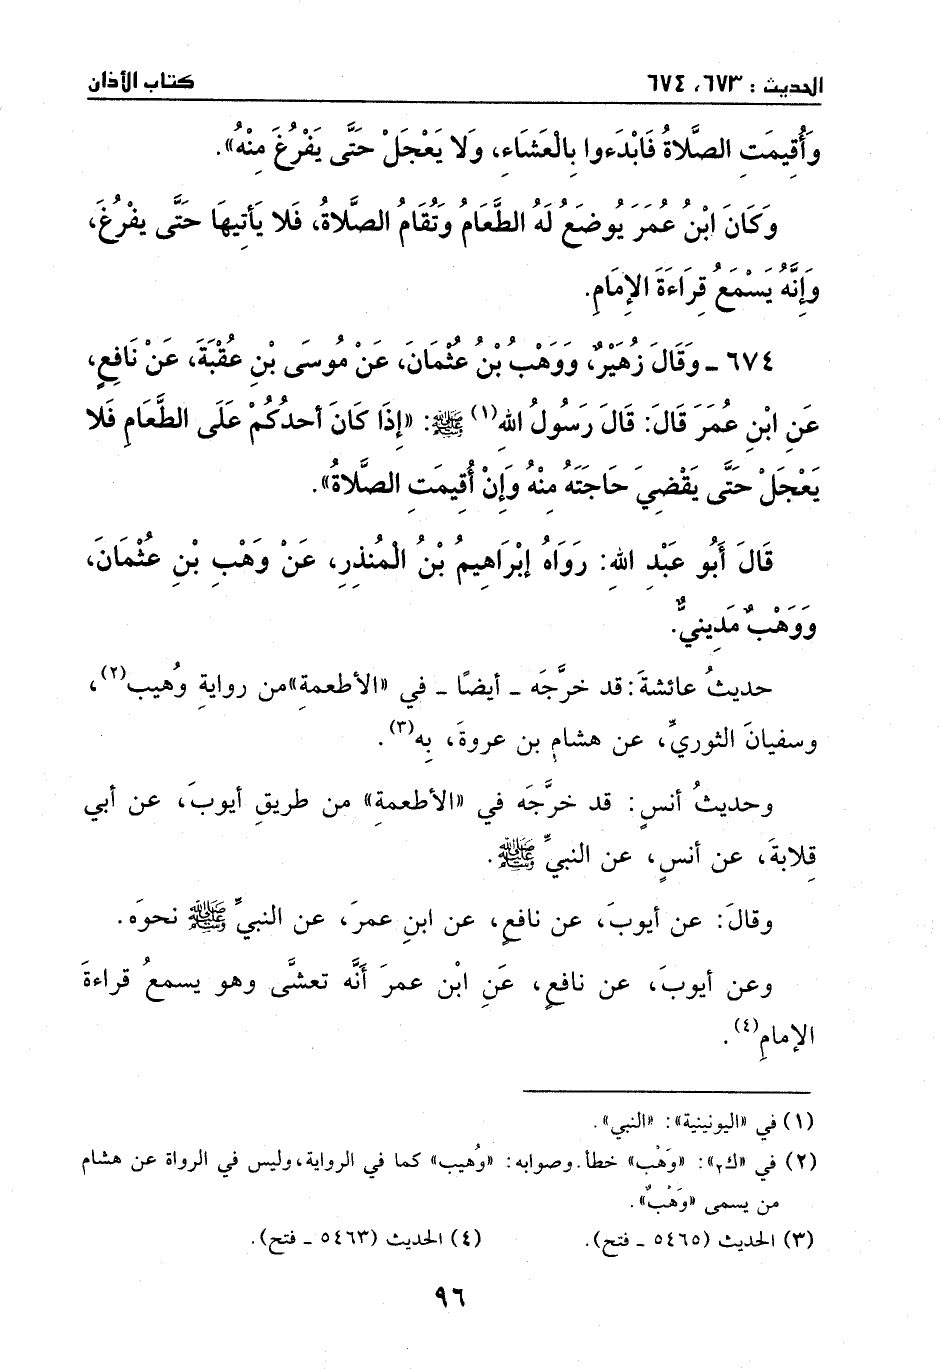 الحديث : ٦٧٣، ٦٧٤
كتاب الأذان
وَأُقِيمَتِ الصَّلَاةُ فَابْدَءوا بِالْعَشَاءِ، وَلا يَعْجَلْ حَتَّى يَفْرُغَ مِنْهُ».
وَكَانَ ابْنُ عُمَرَ يُوضَعُ لَهُ الطَّعَامُ وَتُقَامُ الصَّلاةُ، فَلا يَأتيهَا حَتَّى يفْرُغَ،
وَإِنَّهُ يَسْمَعُ قِرَاءَةَ الإِمَامِ.
٦٧٤ ـ وَقَالَ زُهَيْرٌ، وَوَهْبُ بْنُ عُثْمَانَ، عَنْ مُوسَى بْنِ عُقْبَةَ، عَنْ نَافِعٍ،
عَنِ ابْنِ عُمَرَ قَالَ: قَالَ رَسُولُ اللهِ(١) ﷺ: «إِذَا كَانَ أحدُكُمْ عَلَى الطَّعَامِ فَلا
يَعْجَلْ حَتَّى يَقْضِيَ حَاجَتَهُ مِنْهُ وَإِنْ أُقِيمَتِ الصَّلاةُ».
قَالَ أَبُو عَبْدِ اللهِ: رَوَاهُ إِبْرَاهِيمُ بْنُ الْمُنذِرِ، عَنْ وَهْبِ بْنِ عُثْمَانَ،
وَوَهْبٌ مَدِينيٌّ.
حديثُ عائشةَ: قد خرَّجَه ـ أيضًا ـ في «الأطعمةِ»من روايةِ وُهيب(٢)،
وسفيانَ الثوريِّ، عن هشامِ بن عروةَ، بِه(٣).
وحديثُ أنسٍ: قد خرَّجَه في «الأطعمةِ» من طريقِ أيوبَ، عن أبي
قِلابةَ، عن أنسٍ، عن النبيِّ ﷺ.
وقالَ: عن أيوبَ، عن نافعٍ، عن ابنِ عمرَ، عن النبيِّ ﷺ نحوَه.
وعن أيوبَ، عن نافعٍ، عَنِ ابْن عمرَ أَنَّه تعشَّى وهو يسمعُ قراءةَ
الإمامِ(٤).
(١) في «اليونينية»: «النبي».
(٢) في «ك٢»: «وَهْب» خطأ. وصوابه: «وُهيب» كما في الرواية،وليس في الرواة عن هشام
من يسمى «وَهْبٌ».
(٣) الحديث (٥٤٦٥ ـ فتح).
(٤) الحديث (٥٤٦٣ ـ فتح).
٩٦